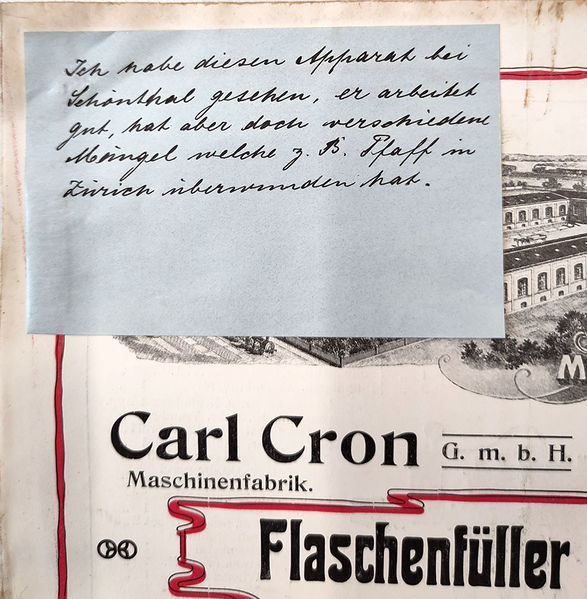 Ich habe diesen Apparat bei
Schönthal gesehen, er arbeitet
gut, hat aber doch verschiedene
Mängel welche z. B. Pfaff in
Zürich überwunden hat.
M
Carl Cron G. m. b. H.
Maschinenfabrik.
Flaschenfüller